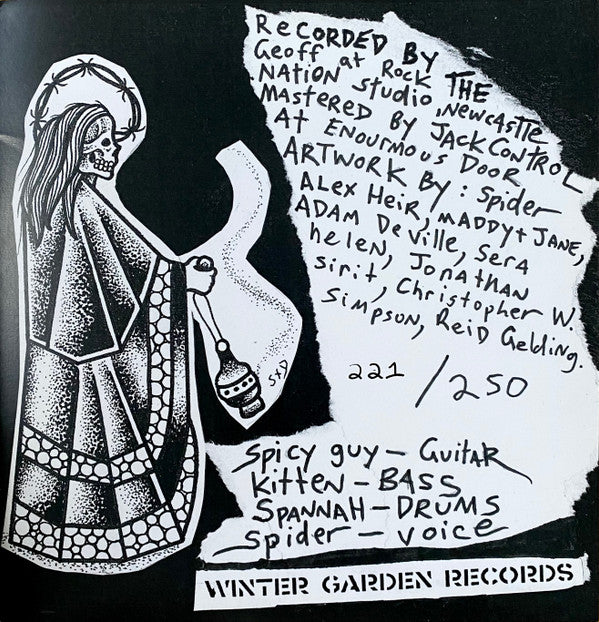 RecORDED BY THE
Geoff at Rock
Nation Studio, Newcastle
Mastered by Jack Control
At Enourmous Door
Artwork By: Spider
Alex Heir, Maddy + Jane,
Adam DeVille, Sera
helen, Jonathan
sirit, Christopher W.
Simpson, Reid Gelding.
221 /250
SXD
Spicy guy – Guitar
Kitten – BASS
Spannah – DRUMS
Spider – voice
WINTER GARDEN RECORDS